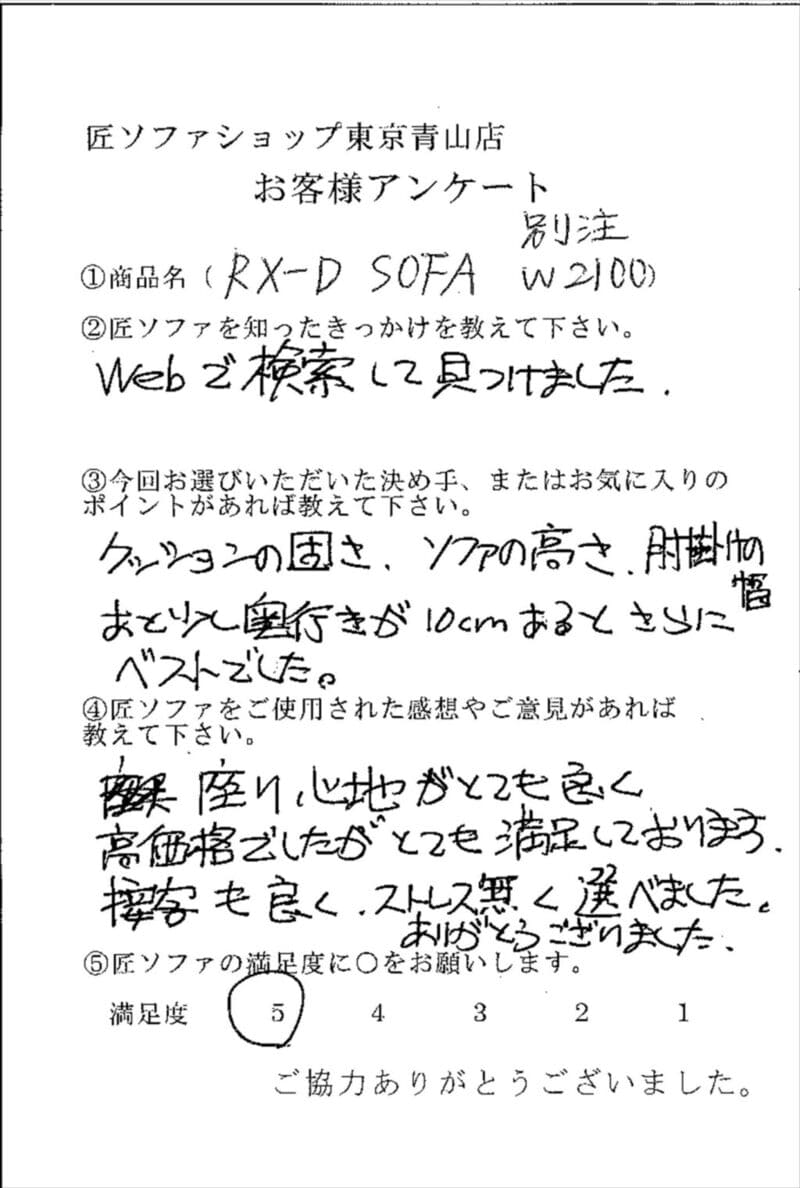 匠ソファショップ東京青山店
お客様アンケート
別注
①商品名（RX-D SOFA W2100）
②匠ソファを知ったきっかけを教えて下さい。
Webで検索して見つけました.
③今回お選びいただいた決め手、またはお気に入りの
ポイントがあれば教えて下さい。
クッションの固さ、ソファの高さ、肘掛けの
幅
あと少し奥行きが10cmあるとさらに
ベストでした。
④匠ソファをご使用された感想やご意見があれば
教えて下さい。
座り心地がとても良く
高価格でしたがとても満足しております.
接客も良く、ストレス無く選べました。
ありがとうございました.
⑤匠ソファの満足度に○をお願いします。
満足度 5 4 3 2 1
ご協力ありがとうございました。